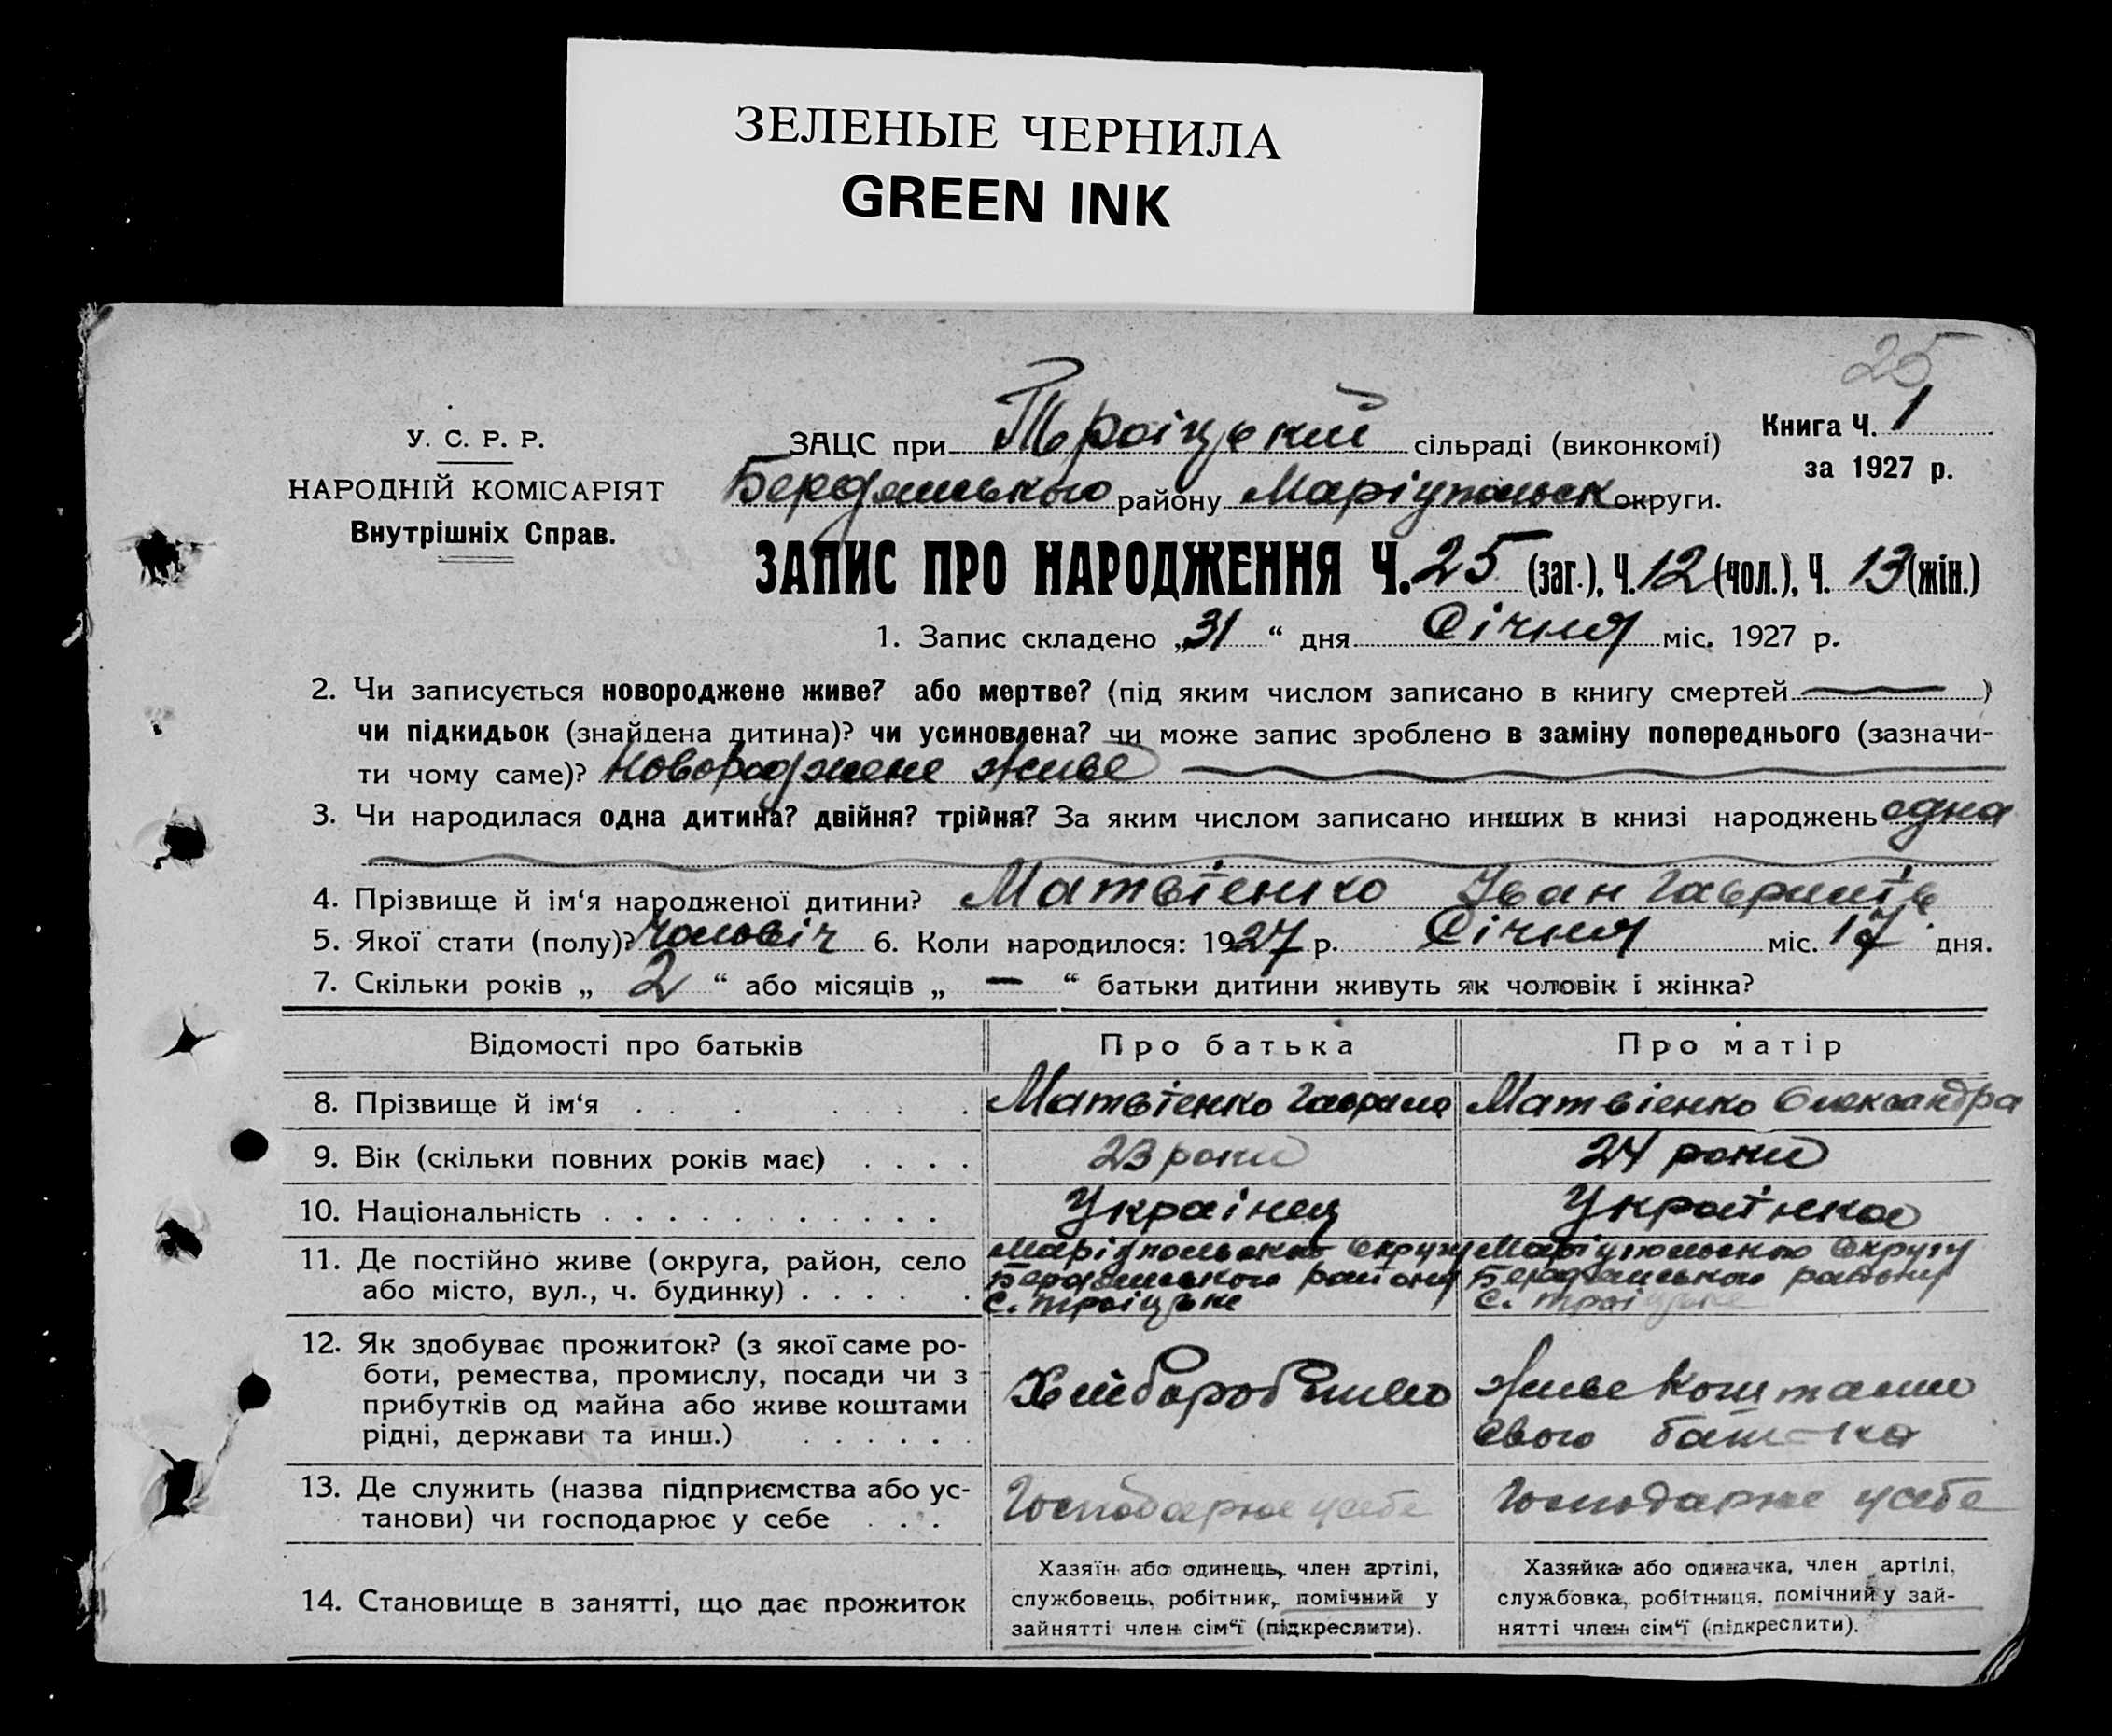 ЗЕЛЕНЫЕ ЧЕРНИЛА
GREEN INK
25
У. С. Р. Р.
НАРОДНІЙ КОМІСАРІЯТ
Внутрішніх Справ.
ЗАЦС при Троіцькій сільраді (виконкомі)
Бердянського району Маріупольськ округи.
Книга Ч. 1
за 1927 р.
ЗАПИС ПРО НАРОДЖЕННЯ Ч. 25 (заг.), Ч. 12 (чол.), Ч. 13 (жін.)
1. Запис складено „31“ дня Січня міс. 1927 р.
2. Чи записується новороджене живе? або мертве? (під яким числом записано в книгу смертей )
чи підкидьок (знайдена дитина)? чи усиновлена? чи може запис зроблено в заміну попереднього (зазначи-
ти чому саме)? Новороджене живе
3. Чи народилася одна дитина? двійня? трійня? За яким числом записано инших в книзі народжень одна
4. Прізвище й ім‘я народженої дитини? Матвіенко Іван Гаврилів
5. Якої стати (полу)? Чоловіч 6. Коли народилося: 1927 р. Січня міс. 17 дня.
7. Скільки років „ 2 “ або місяців „ — “ батьки дитини живуть як чоловік і жінка?
Відомості про батьків Про батька Про матір
8. Прізвище й ім‘я . . . . . . . Матвіенко Гаврило Матвіенко Олександра
9. Вік (скільки повних років має) . . . . 23 роки 24 роки
10. Національність . . . . . . . . . . . Украінец Украінка
11. Де постійно живе (округа, район, село
або місто, вул., ч. будинку) . . . . .
Маріупольською Округу
Бердянського району
с. Троіцьке
Маріупольською Округу
Бердянського району
с. Троіцьке
12. Як здобуває прожиток? (з якої саме ро-
боти, ремества, промислу, посади чи з
прибутків од майна або живе коштами
рідні, держави та инш.) . . . . . .
Хліборобство
живе коштами
свого батька
13. Де служить (назва підприємства або ус-
танови) чи господарює у себе . . .
Господарює усебе
Господарює усебе
14. Становище в занятті, що дає прожиток
Хазяїн або одинець, член артілі,
службовець, робітник, помічний у
зайнятті член сім“ї (підкреслити).
Хазяйка або одиначка, член артілі,
службовка, робітниця, помічний у зай-
нятті член сім“ї (підкреслити).